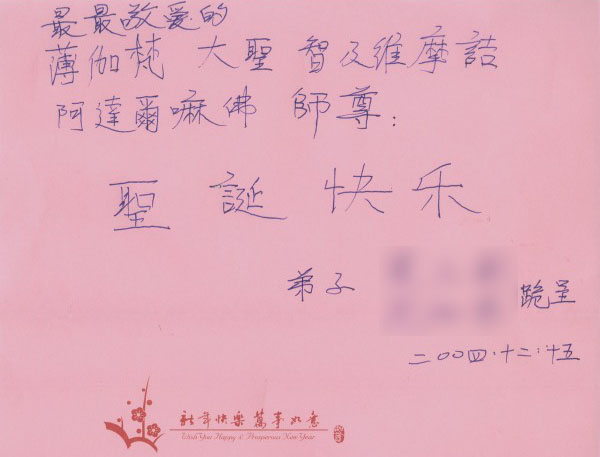 最最敬爱的
薄伽梵 大聖 智及維摩詰
阿達爾嘛佛 師尊：
聖誕快乐
弟子 跪呈
二〇〇四·十二·十五
新年快樂萬事如意
Wish You Happy & Prosperous New Year